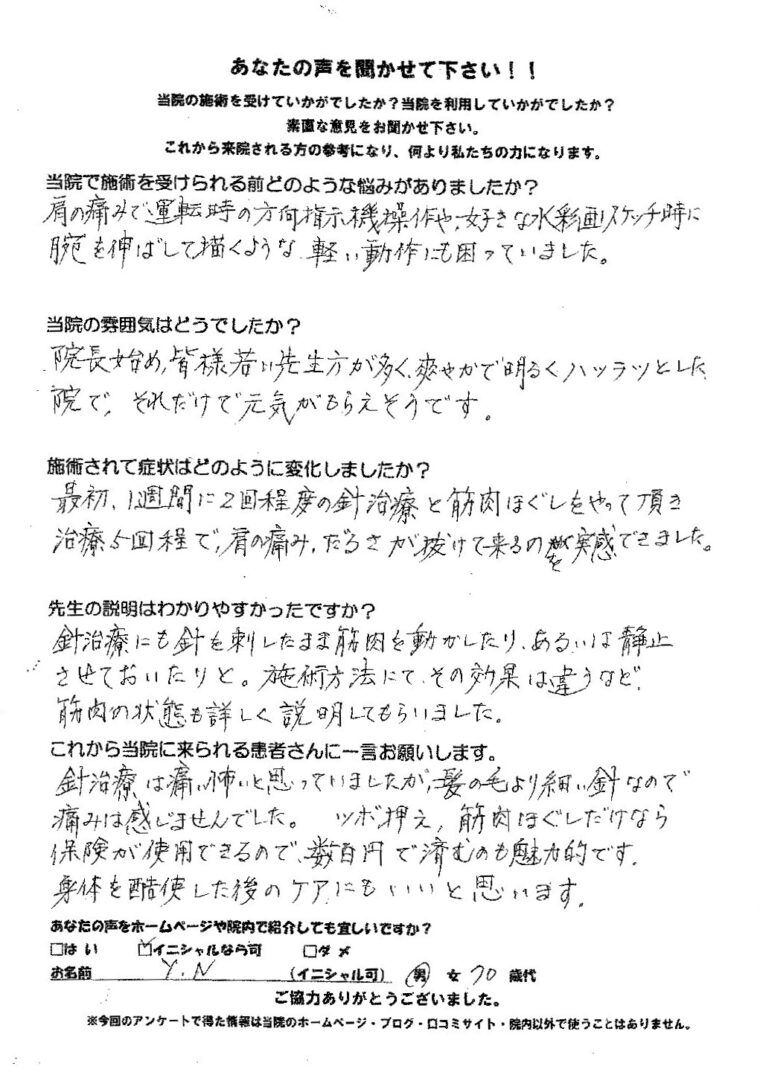 あなたの声を聞かせて下さい！！
当院の施術を受けていかがでしたか？当院を利用していかがでしたか？
素直な意見をお聞かせ下さい。
これから来院される方の参考になり、何より私たちの力になります。
当院で施術を受けられる前どのような悩みがありましたか？
肩の痛みで運転時の方向指示機操作や、好きな水彩画スケッチ時に
腕を伸ばして描くような軽い動作にも困っていました。
当院の雰囲気はどうでしたか？
院長始め、皆様若い先生方が多く、爽やかで明るくハツラツとした
院で、それだけで元気がもらえそうです。
施術されて症状はどのように変化しましたか？
最初、1週間に2回程度の針治療と筋肉ほぐしをやって頂き
治療5回程で、肩の痛み、だるさが抜けて来るのを実感できました。
先生の説明はわかりやすかったですか？
針治療にも針を刺したまま筋肉を動かしたり、あるいは静止
させておいたりと。施術方法にて、その効果は違うなど、
筋肉の状態も詳しく説明してもらいました。
これから当院に来られる患者さんに一言お願いします。
針治療は痛い怖いと思っていましたが、髪の毛より細い針なので
痛みは感じませんでした。 ツボ押え、筋肉ほぐしだけなら
保険が使用できるので、数百円で済むのも魅力的です。
身体を酷使した後のケアにもいいと思います。
あなたの声をホームページや院内で紹介しても宜しいですか？
□はい ☑イニシャルなら可 □ダメ
お名前 Y.N (イニシャル可) 男 女 70 歳代
ご協力ありがとうございました。
※今回のアンケートで得た情報は当院のホームページ・ブログ・口コミサイト・院内以外で使うことはありません。